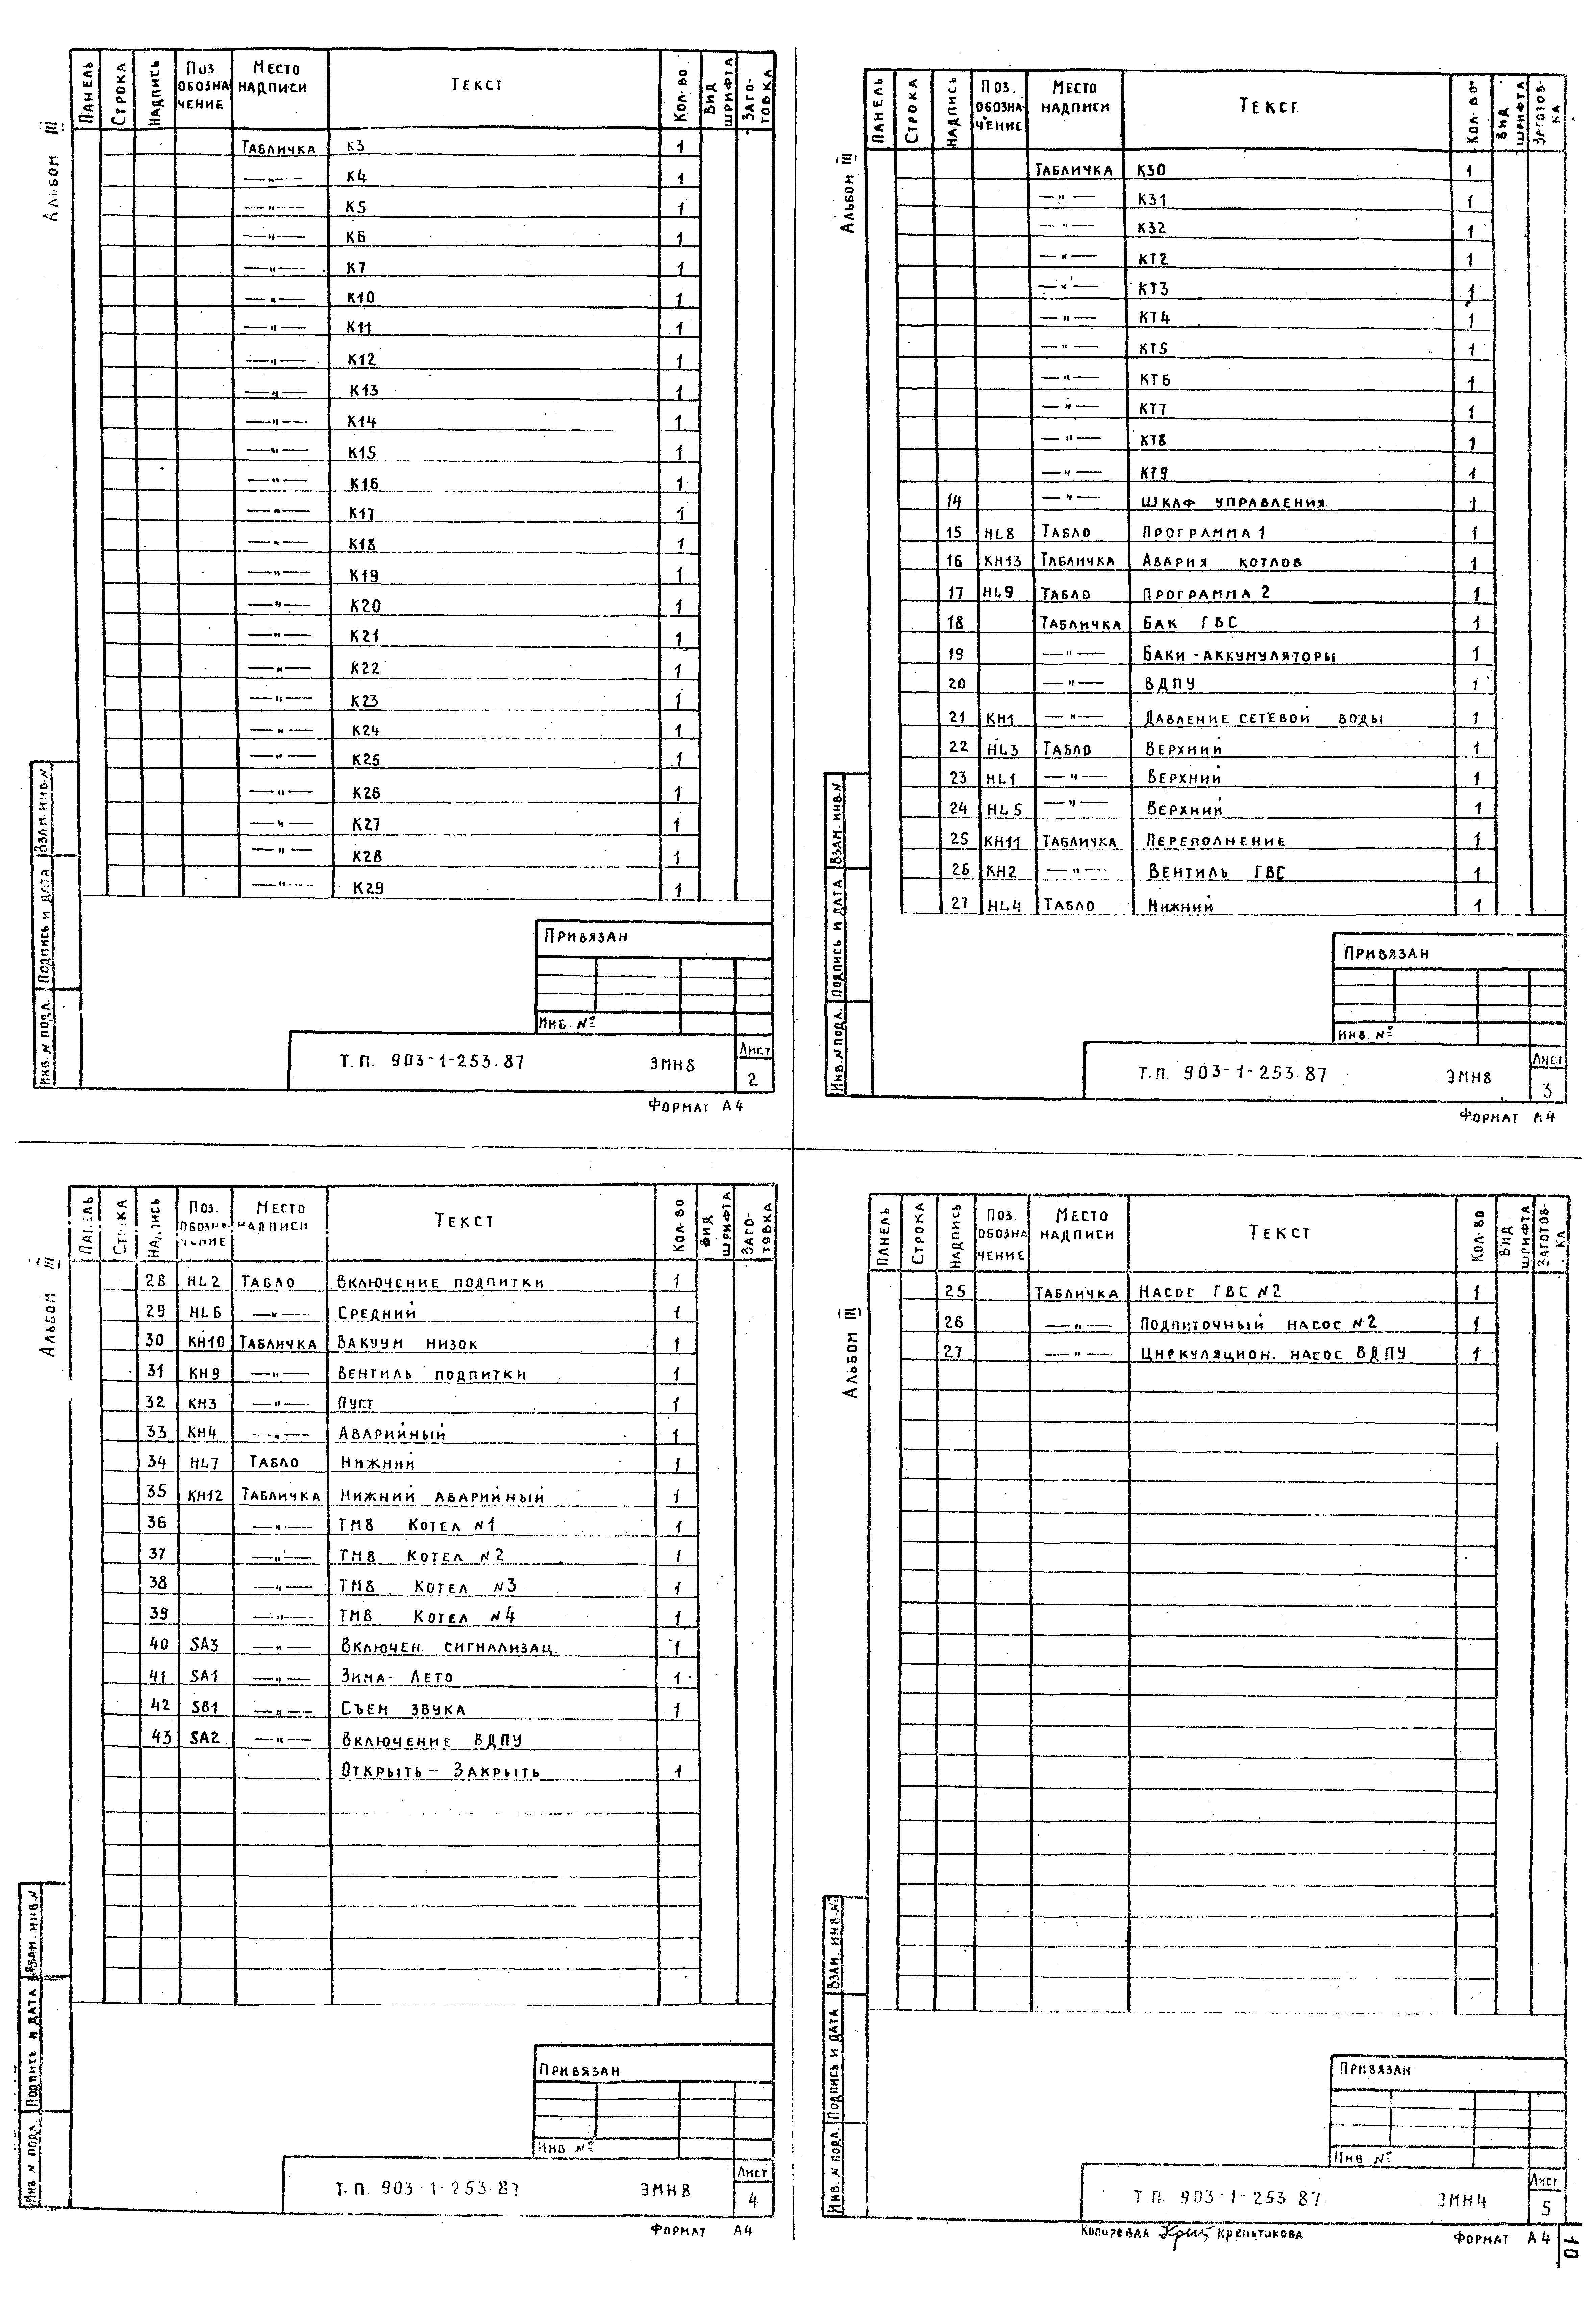 Альбом III
Панель Строка Надпись Поз. обозначение Место надписи Текст Кол-во Вид шрифта Заготовка
Табличка К3 1
—"— К4 1
—"— К5 1
—"— К6 1
—"— К7 1
—"— К10 1
—"— К11 1
—"— К12 1
—"— К13 1
—"— К14 1
—"— К15 1
—"— К16 1
—"— К17 1
—"— К18 1
—"— К19 1
—"— К20 1
—"— К21 1
—"— К22 1
—"— К23 1
—"— К24 1
—"— К25 1
—"— К26 1
—"— К27 1
—"— К28 1
—"— К29 1
Инв. N подл. Подпись и дата Взам. инв. N
Привязан
Инв. №
Т.П. 903-1-253.87 ЭМН8 Лист 2
Формат А4
Альбом III
Панель Строка Надпись Поз. обозначение Место надписи Текст Кол-во Вид шрифта Заготовка
Табличка К30 1
—"— К31 1
—"— К32 1
—"— КТ2 1
—"— КТ3 1
—"— КТ4 1
—"— КТ5 1
—"— КТ6 1
—"— КТ7 1
—"— КТ8 1
—"— КТ9 1
14 —"— Шкаф управления 1
15 HL8 Табло Программа 1 1
16 КН13 Табличка Авария котлов 1
17 HL9 Табло Программа 2 1
18 Табличка Бак ГВС 1
19 —"— Баки-аккумуляторы 1
20 —"— ВДПУ 1
21 КН1 —"— Давление сетевой воды 1
22 HL3 Табло Верхний 1
23 HL1 —"— Верхний 1
24 HL5 —"— Верхний 1
25 КН11 Табличка Переполнение 1
26 КН2 —"— Вентиль ГВС 1
27 HL4 Табло Нижний 1
Инв. N подл. Подпись и дата Взам. инв. N
Привязан
Инв. №
Т.П. 903-1-253.87 ЭМН8 Лист 3
Формат А4
Альбом III
Панель Строка Надпись Поз. обозначение Место надписи Текст Кол-во Вид шрифта Заготовка
28 HL2 Табло Включение подпитки 1
29 HL6 —"— Средний 1
30 КН10 Табличка Вакуум низок 1
31 КН9 —"— Вентиль подпитки 1
32 КН3 —"— Пуст 1
33 КН4 —"— Аварийный 1
34 HL7 Табло Нижний 1
35 КН12 Табличка Нижний аварийный 1
36 —"— ТМ8 Котел N1 1
37 —"— ТМ8 Котел N2 1
38 —"— ТМ8 Котел N3 1
39 —"— ТМ8 Котел N4 1
40 SA3 —"— Включен. сигнализац. 1
41 SA1 —"— Зима-Лето 1
42 SB1 —"— Съем звука 1
43 SA2 —"— Включение ВДПУ
Открыть - Закрыть 1
Инв. N подл. Подпись и дата Взам. инв. N
Привязан
Инв. №
Т.П. 903-1-253.87 ЭМН8 Лист 4
Формат А4
Альбом III
Панель Строка Надпись Поз. обозначение Место надписи Текст Кол-во Вид шрифта Заготовка
25 Табличка Насос ГВС N2 1
26 —"— Подпиточный насос N2 1
27 —"— Циркуляцион. насос ВДПУ 1
Инв. N подл. Подпись и дата Взам. инв. N
Привязан
Инв. №
Т.П. 903-1-253.87 ЭМН4 Лист 5
Формат А4
10